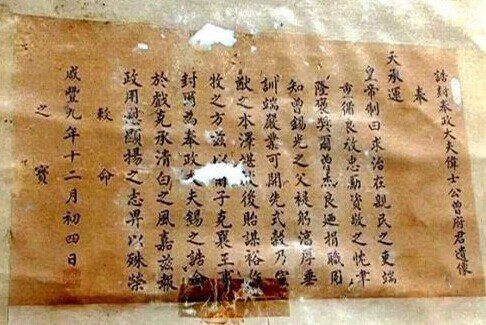 誥封奉政大夫偉士公曾府君遺像
奉
天承運
皇帝制曰求治在親民之吏端
重循良敎忠勵資敬之忱聿
隆褒奬爾 捐職同
知曾錫光之父禔躬淳厚垂
訓端嚴業可開先式榖乃宣
猷之本澤 後貽謀裕作
牧之方兹以爾子克襄王事
封爾為奉政大夫錫之誥命
於戲克承清白之風嘉兹報
政用慰顯揚之志畀以殊榮
咸豐九年十二月初四日
敕命
之寶